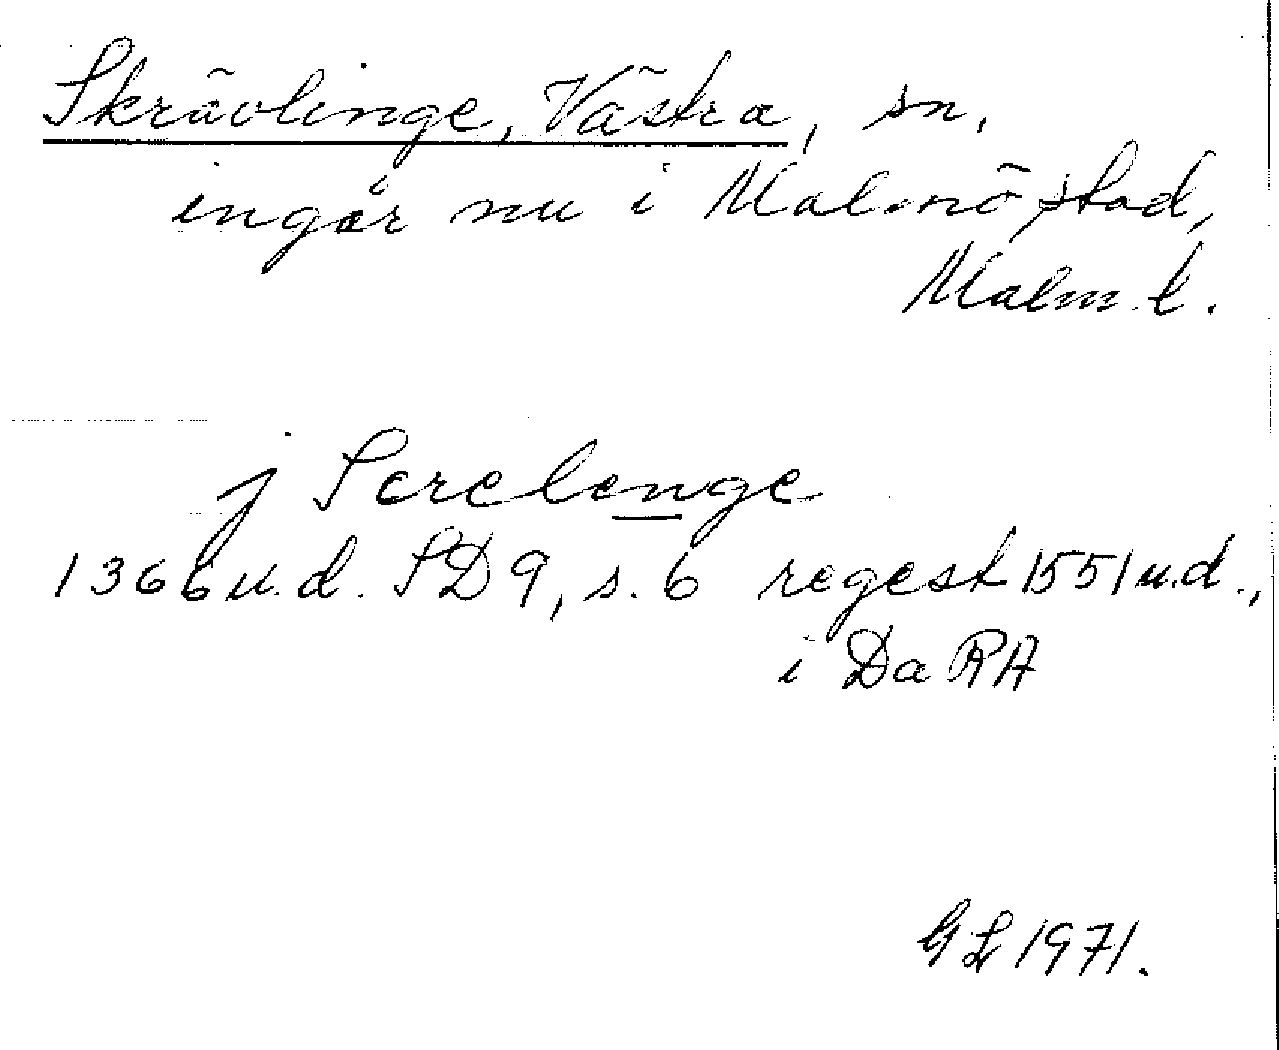 Skrävlinge, Västra, sn,
ingår nu i Malmö stad,
Malm. l.
j Screlenge
1366 u.d. SD 9, s. 6 regest 1551 u.d.,
i Da RA
GL 1971.